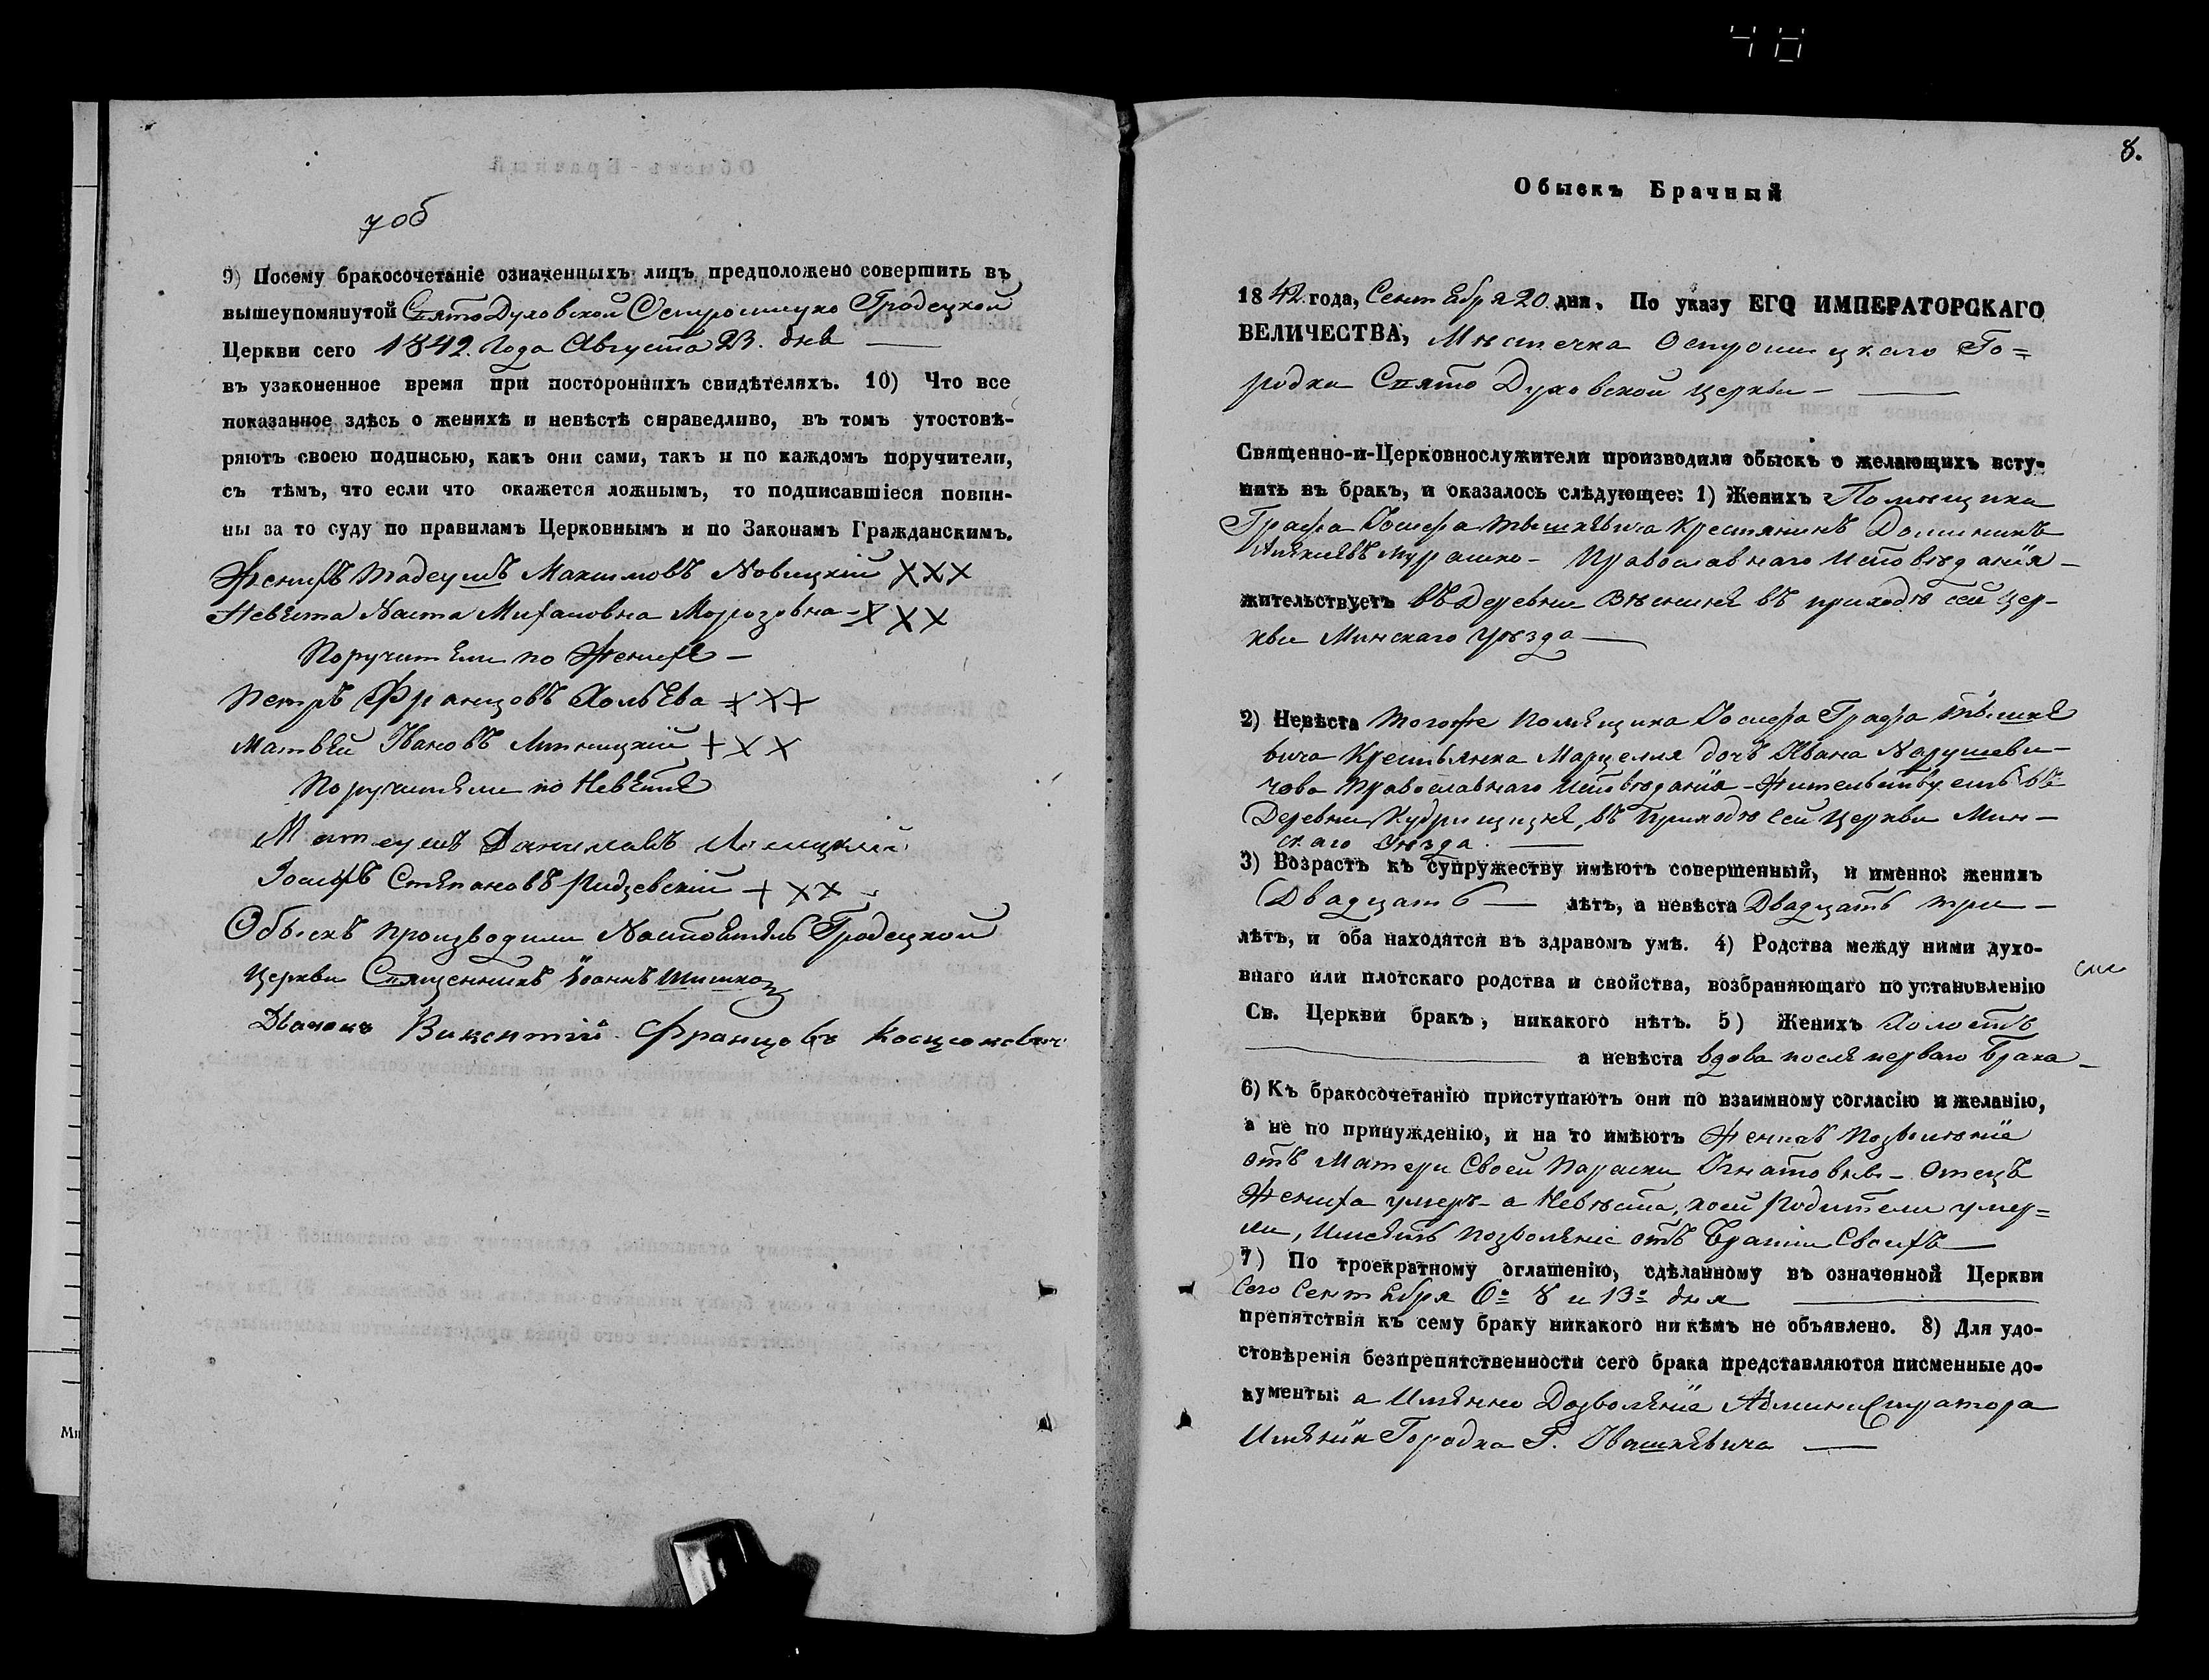 7об
9) Посему бракосочетаніе означенныхъ лицъ предположено совершить въ
вышеупомянутой Свято Духовской Острошицко Гродецкой
Церкви сего 1842. Года Августа 23. дня
въ узаконенное время при постороннихъ свидѣтеляхъ. 10) Что все
показанное здѣсь о женихѣ и невѣстѣ справедливо, въ томъ утостовѣ-
ряютъ своею подписью, какъ они сами, такъ и по каждомъ поручители,
съ тѣмъ, что если что окажется ложнымъ, то подписавшіеся повин-
ны за то суду по правиламъ Церковнымъ и по Законамъ Гражданскимъ.
Женихъ Тадеушъ Максимовъ Новицкій ХХХ
Невѣста Наста Михаловна Морозовна - Х Х Х
Поручители по Женихе -
Петръ Францовъ ХХХ
Матвѣй Ивановъ Липницкій + Х Х
Поручители по Невѣсте
Матеушъ Даниловъ
Іосифъ Степановъ + ХХ
Обыскъ производили Настоятель Гродецкой
Церкви Священникъ Іоаннъ Шишко
Дьячокъ Викентій Францовъ
8.
Обыскъ Брачный
1842 года, Сентября 20 дня. По указу ЕГО ИМПЕРАТОРСКАГО
ВЕЛИЧЕСТВА, Мѣстечка Острошицкаго Го=
родка Свято Духовской церкви -
Священно-и-Церковнослужители производили обыскъ о желающихъ всту-
пить въ бракъ, и оказалось слѣдующее: 1) Женихъ Помѣщика
Графа Іосифа Тышкевича Крестянинъ Доминикъ
Мурашко - Православнаго Исповѣданія -
жительствуетъ въ Деревни въ приходѣ сей Цер-
кви Минскаго уѣзда
2) Невѣста тогоже Помѣщика Іосифа Графа Тышке
вича Крестьянка Марцелля дочъ Ивана Нарушеви-
чова Православнаго Исповѣданія - Жительствуетъ въ
Деревни въ Приходѣ сей Церкви Мин-
скаго Уѣзда.
3) Возрастъ къ супружеству имѣютъ совершенный, и именно: женихъ
Двадцать лѣтъ, а невѣста Двадцать три -
лѣтъ, и оба находятся въ здравомъ умѣ. 4) Родства между ними духо-
внаго или плотскаго родства и свойства, возбраняющаго по установленію
Св. Церкви бракъ, никакого нѣтъ. 5) Женихъ Холостъ
а невѣста вдова после перваго брака -
6) Къ бракосочетанію приступаютъ они по взаимному согласію и желанію,
а не по принужденію, и на то имѣютъ Женихъ позволеніе
отъ Матери Своей Параски Игнатовны - Отецъ
Жениха умеръ - а Невѣста, коей Родители умер=
ли, Имѣетъ позволеніе отъ Братіи Своихъ
7) По троекратному оглашенію, сдѣланному въ означенной Церкви
Сего Сентября 6о 8 и 13о дня
препятствія къ сему браку никакого ни кѣмъ не объявлено. 8) Для удо-
стовѣренія безпрепятственности сего брака представляются писменные до-
кументы: а Имянно Дозволеніе Администратора
Имѣнія Городка Г. Ивашкевича